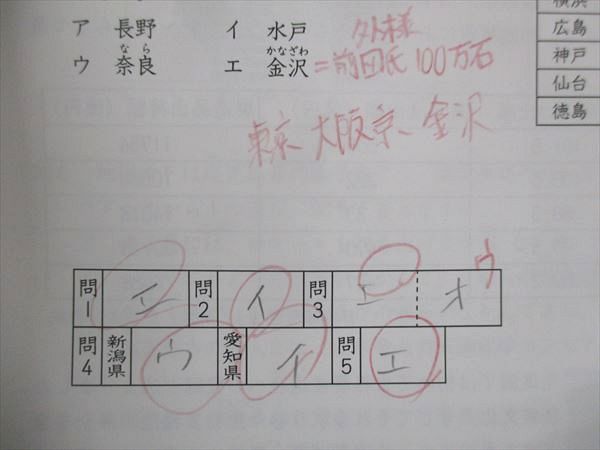 ア 長野 イ 水戸
ウ 奈良 エ 金沢
なら
かなざわ
外様
=前田氏 100万石
東京、大阪京、金沢
横浜
広島
神戸
仙台
徳島
問1 エ 問2 イ 問3 エ オ ウ
問4 新潟県 ウ 愛知県 チ 問5 エ